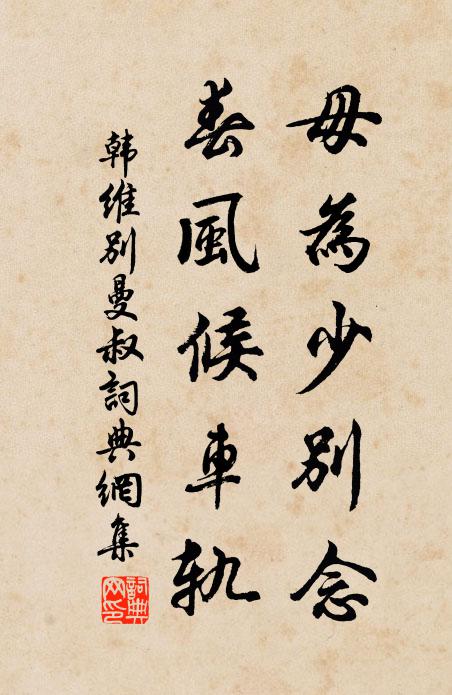 毋為少別念
春風候車軌
韩維别曼叔詞典網集
詞典网印